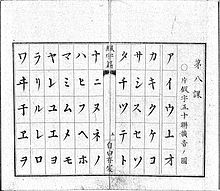 第八課
○片假字五十聯音ノ圖
アイウエオ
カキクケコ
サシスセソ
タチツテト
綴字篇
上
ナニヌネノ
ハヒフヘホ
マミムメモ
ヤユヨ
ラリルレロ
ワヰヱヲ